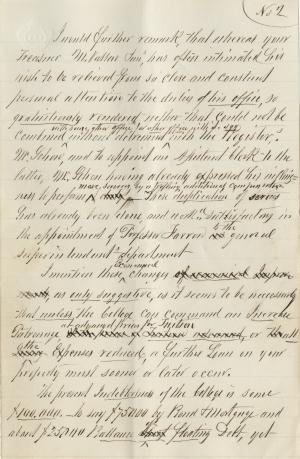 No 2
I would further remark, that whereas your
Treasurer M. Vassar Jun^r has often intimated his
wish to be relieved from so close and constant
personal attention to the duties of this office, so
gratuitously rendered, whether that could not be
combined without detriment with the Register,
Mr. Schou, and to appoint an assistant Clerk to the
latter, Mr. Schou having already expressed his willing-
ness to perform
more service by a trifling additional compensation
This duplication of
has already been done and works satisfactory in
the appointment of Tryson Farrar to the general
superintendents department
I mention these changes
as only suggestive, as it seems to be necessary
that unless the College can command an Increase
Patronage at advanced prices for Tuition or
the Expenses reduced, a further Loan on your
property must sooner or later occur.
The present Indebtedness of the College is some
$100,000 – to say $75,000 by Bond & Mortgage and
about $25,000 Ballance Floating Debt, yet